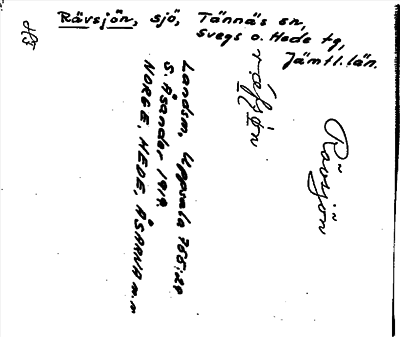 Rävsjön, sjö, Tännäs sn,
Svegs o. Hede tg,
Jämtl. län.
Rävsjön
Landsm. Uppsala 755:29
S. Åsander 1919.
NORGE, HEDE, ÅSARNA m.m